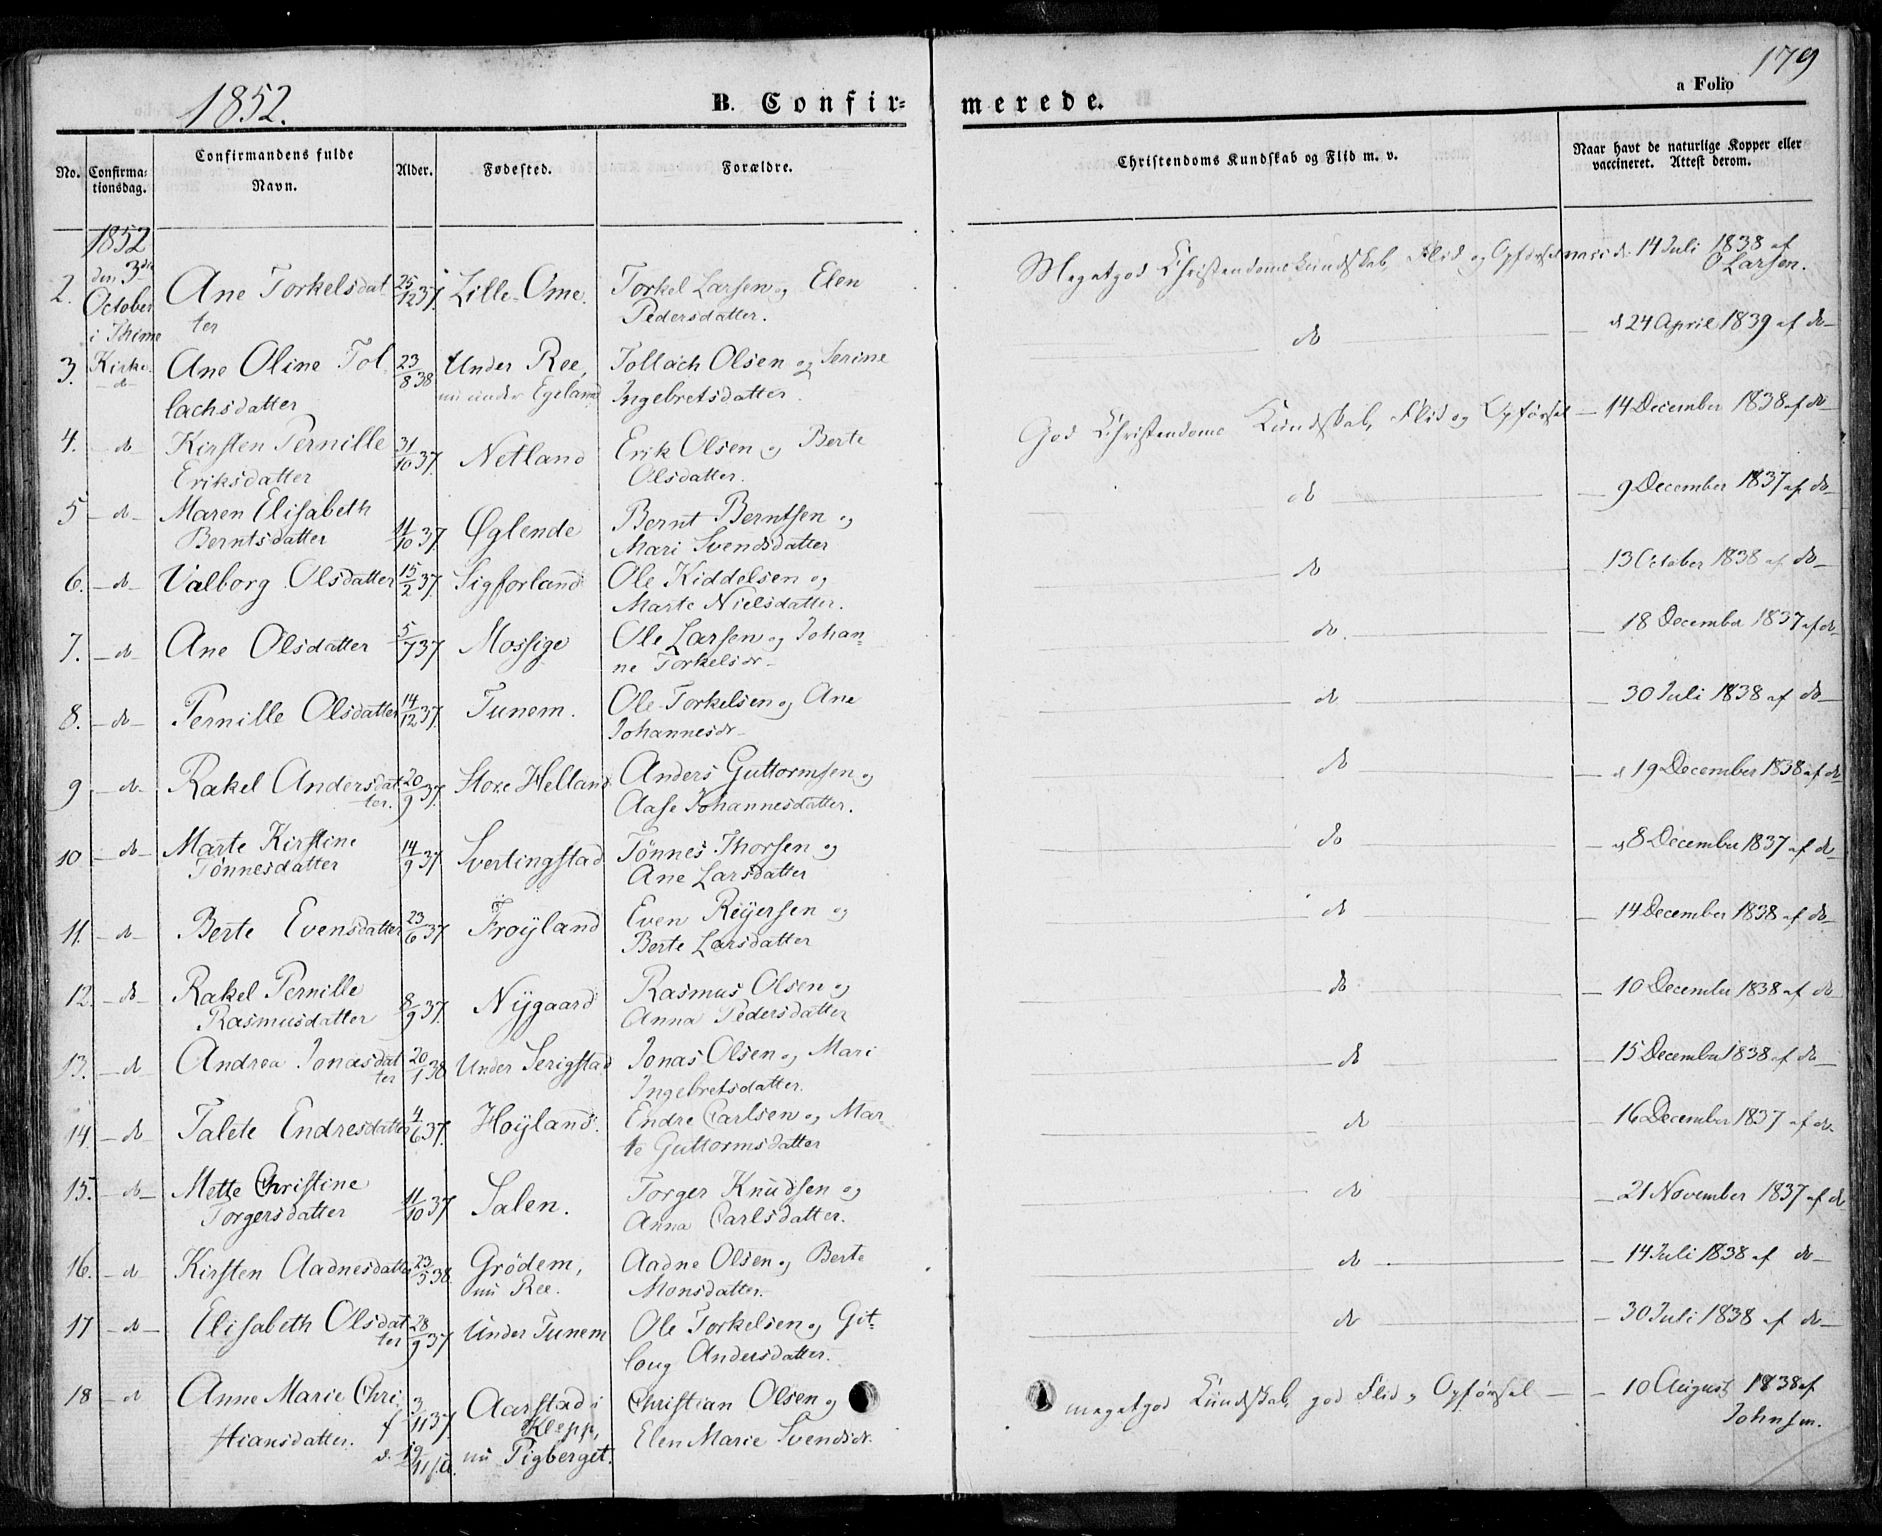 179
1852.
B. Confir-
merede.
a Folio
No.
Confirma-
tionsdag.
Confirmandens fulde
Navn.
Alder.
Fødested.
Forældre.
Christendoms Kundskab og Flid m. v.
Naar havt de naturlige Kopper eller
vaccineret. Attest derom.
1852
den 3die
October
i Thime
Kirke
2. Ane Torkelsdat
ter
25/12 37. Lille-Ome. Torkel Larsen og Elen
Pedersdatter.
Megetgod Christendomskundskab, Flid og Opførsel
14 Juli 1838 af
O Larsen.
3. - do - Ane Oline Tol
lachsdatter
23/8 38 Under Ree,
nu under Egeland
Tollach Olsen og Serine
Ingebretsdatter.
do
24 April 1839 af do -
4. - do - Kirsten Pernille
Eriksdatter
31/10 37. Netland Erik Olsen og Berte
Olsdatter.
God Christendoms Kundskab, Flid og Opførsel
- 14 December 1838 af do -
5 - do - Maren Elisabeth
Berntsdatter
11/10 37. Øglende Bernt Berntsen og
Mari Svendsdatter
do
- 9 December 1837 af do -
6. - do - Valborg Olsdatter 15/2 37. Sigforland Ole Kiddelsen og
Marte Nielsdatter.
do
13 October 1838 af do -
7. - do - Ane Olsdatter 5/7 37 Mossige Ole Larsen og Johan-
ne Torkelsdr -
do
- 18 December 1837 af do -
8. - do - Pernille Olsdatter 14/12 37. Tunem. Ole Torkelsen og Ane
Johannesdr -
do
- 30 Juli 1838 af do -
9 - do - Rakel Andersdat
ter.
20/9 37. Store Helland Anders Guttormsen og
Aase Johannesdatter.
do
- 19 December 1838 af do -
10 - do - Marte Kirstine
Tønnesdatter
14/9 37. Sverlingstad Tønnes Thorsen og
Ane Larsdatter
do
- 8 December 1837 af do -
11. - do - Berte Evensdatter 23/6 37. Frøyland Even Reyersen og
Berte Larsdatter
do
- 14 December 1838 af do -
12. - do - Rakel Pernille
Rasmusdatter
8/9 37. Nygaard Rasmus Olsen og
Anna Pedersdatter
do
- 10 December 1838 af do
13. - do Andrea Jonasdat
ter
20/1 38 Under Serigstad Jonas Olsen og Mari
Ingebretsdatter.
do
- 15 December 1838 af do -
14. - do Talete Endresdatter 4/6 37. Høyland. Endre Carlsen og Mar-
te Guttormsdatter
do
- 16 December 1837 af do -
15. - do - Mette Christine
Torgersdatter
11/10 37. Salen. Torger Knudsen og
Anna Carlsdatter.
do
- 21 November 1837 af do
16. - do Kirsten Aadnesdatter 23/5 38 Grødem,
nu Ree.
Aadne Olsen og Berte
Monsdatter.
do
- 14 Juli 1838 af do -
17 - do - Elisabeth Olsdat
ter
28/9 37 Under Tunem Ole Torkelsen og Git-
loug Andersdatter.
do
- 30 Juli 1838 af do -
18 - do Anne Marie Chri-
stiansdatter.
f 3/11 37.
d. 19/11
Aarstad i
Klepp,
nu Pigberget.
Christian Olsen og
Elen Marie Svendsdr.
megetgod Kundskab, god Flid og Opførsel -
- 10 August 1838 af
Johnsen.